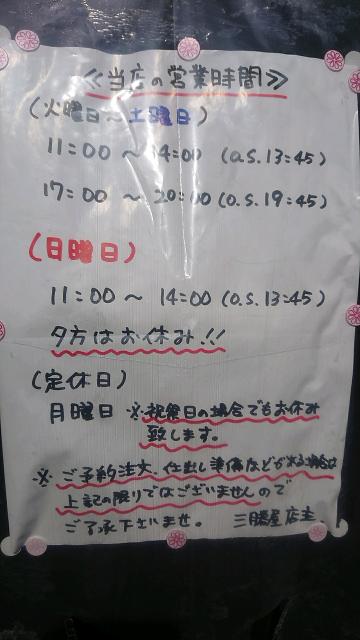 ≪当店の営業時間≫
(火曜日～土曜日)
11:00～14:00 (o.s.13:45)
17:00～20:00 (o.s.19:45)
(日曜日)
11:00～14:00 (o.s.13:45)
夕方はお休み!!
(定休日)
月曜日 ※祝祭日の場合でもお休み
致します。
※ご予約注文、仕出し準備などが有る場合は
上記の限りではございませんので
ご了承下さいませ。 三勝屋店主